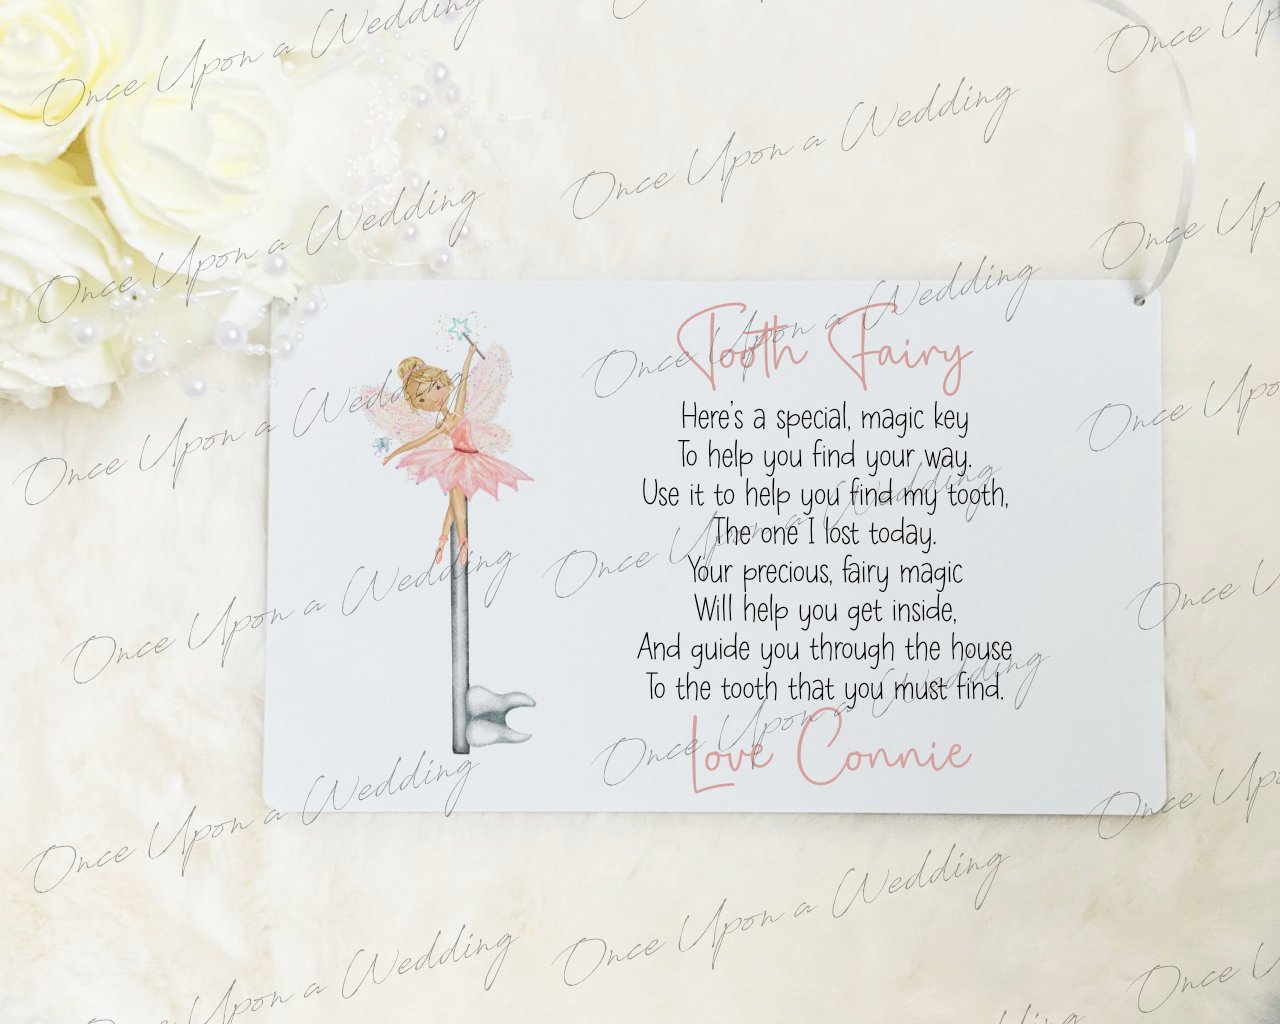 Once Upon a Wedding
Once Upon a Wedding
Once Upon a Wedding
Once Upon a Wedding
Once Upon a
Once Upon a
Tooth Fairy
Once Upon a Wedding
Once Upon a Wedding
Once Upon
Here's a special, magic key
To help you find your way.
Use it to help you find my tooth,
The one I lost today.
Your precious, fairy magic
Will help you get inside,
And guide you through the house
To the tooth that you must find.
Once Upon a Wedding
Once Upon a Wedding
Once Up
Love Connie
Once Upon a Wedding
Once Upon a Wedding
Once Upon
Once Upon a Wedding
Once Upon a Wedding
Once U